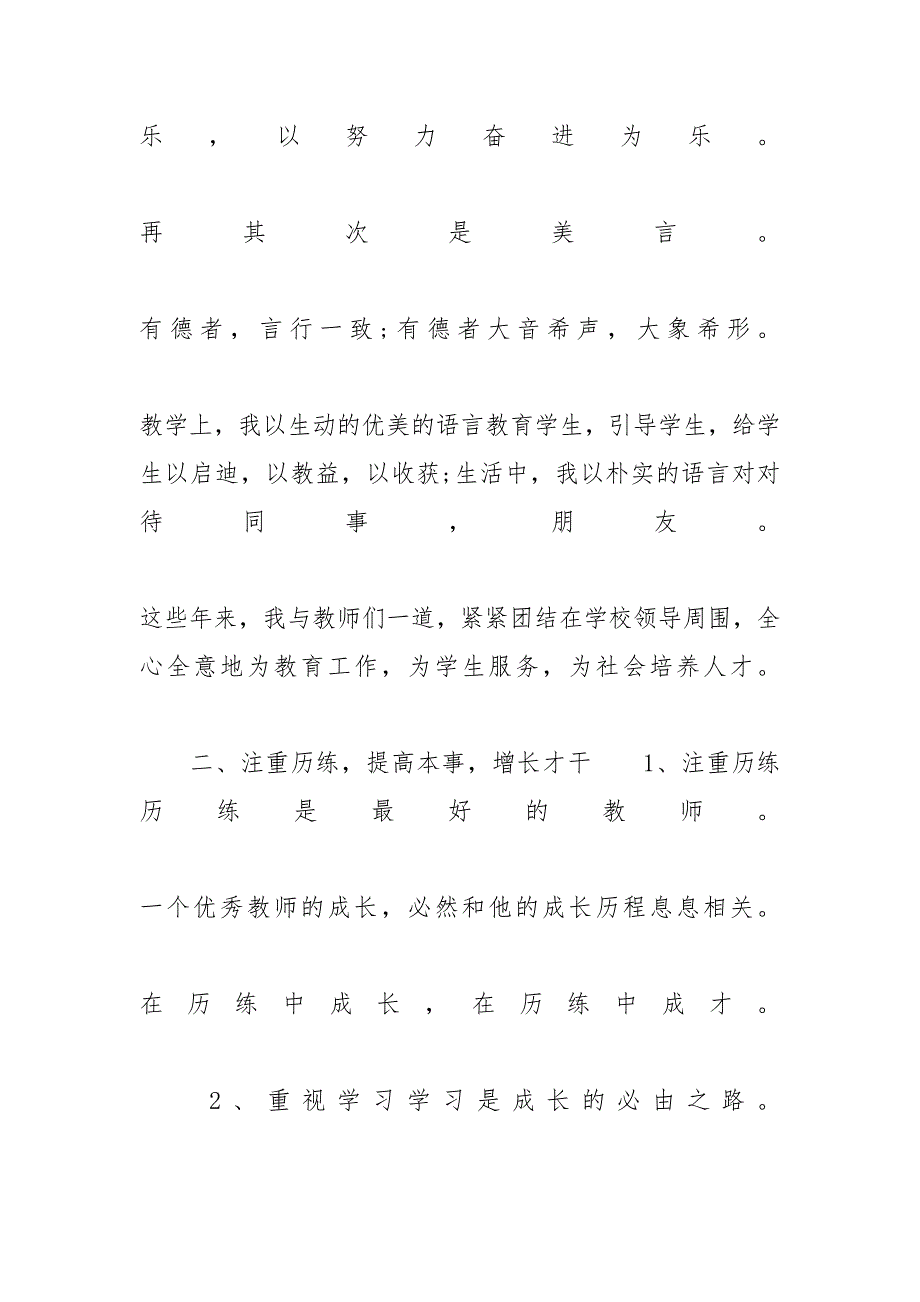 乐，以努力奋进为乐。
再其次是美言。
有德者，言行一致;有德者大音希声，大象希形。
教学上，我以生动的优美的语言教育学生，引导学生，给学
生以启迪，以教益，以收获;生活中，我以朴实的语言对对
待同事，朋友。
这些年来，我与教师们一道，紧紧团结在学校领导周围，全
心全意地为教育工作，为学生服务，为社会培养人才。
二、注重历练，提高本事，增长才干 1、注重历练
历练是最好的教师。
一个优秀教师的成长，必然和他的成长历程息息相关。
在历练中成长，在历练中成才。
2、重视学习学习是成长的必由之路。